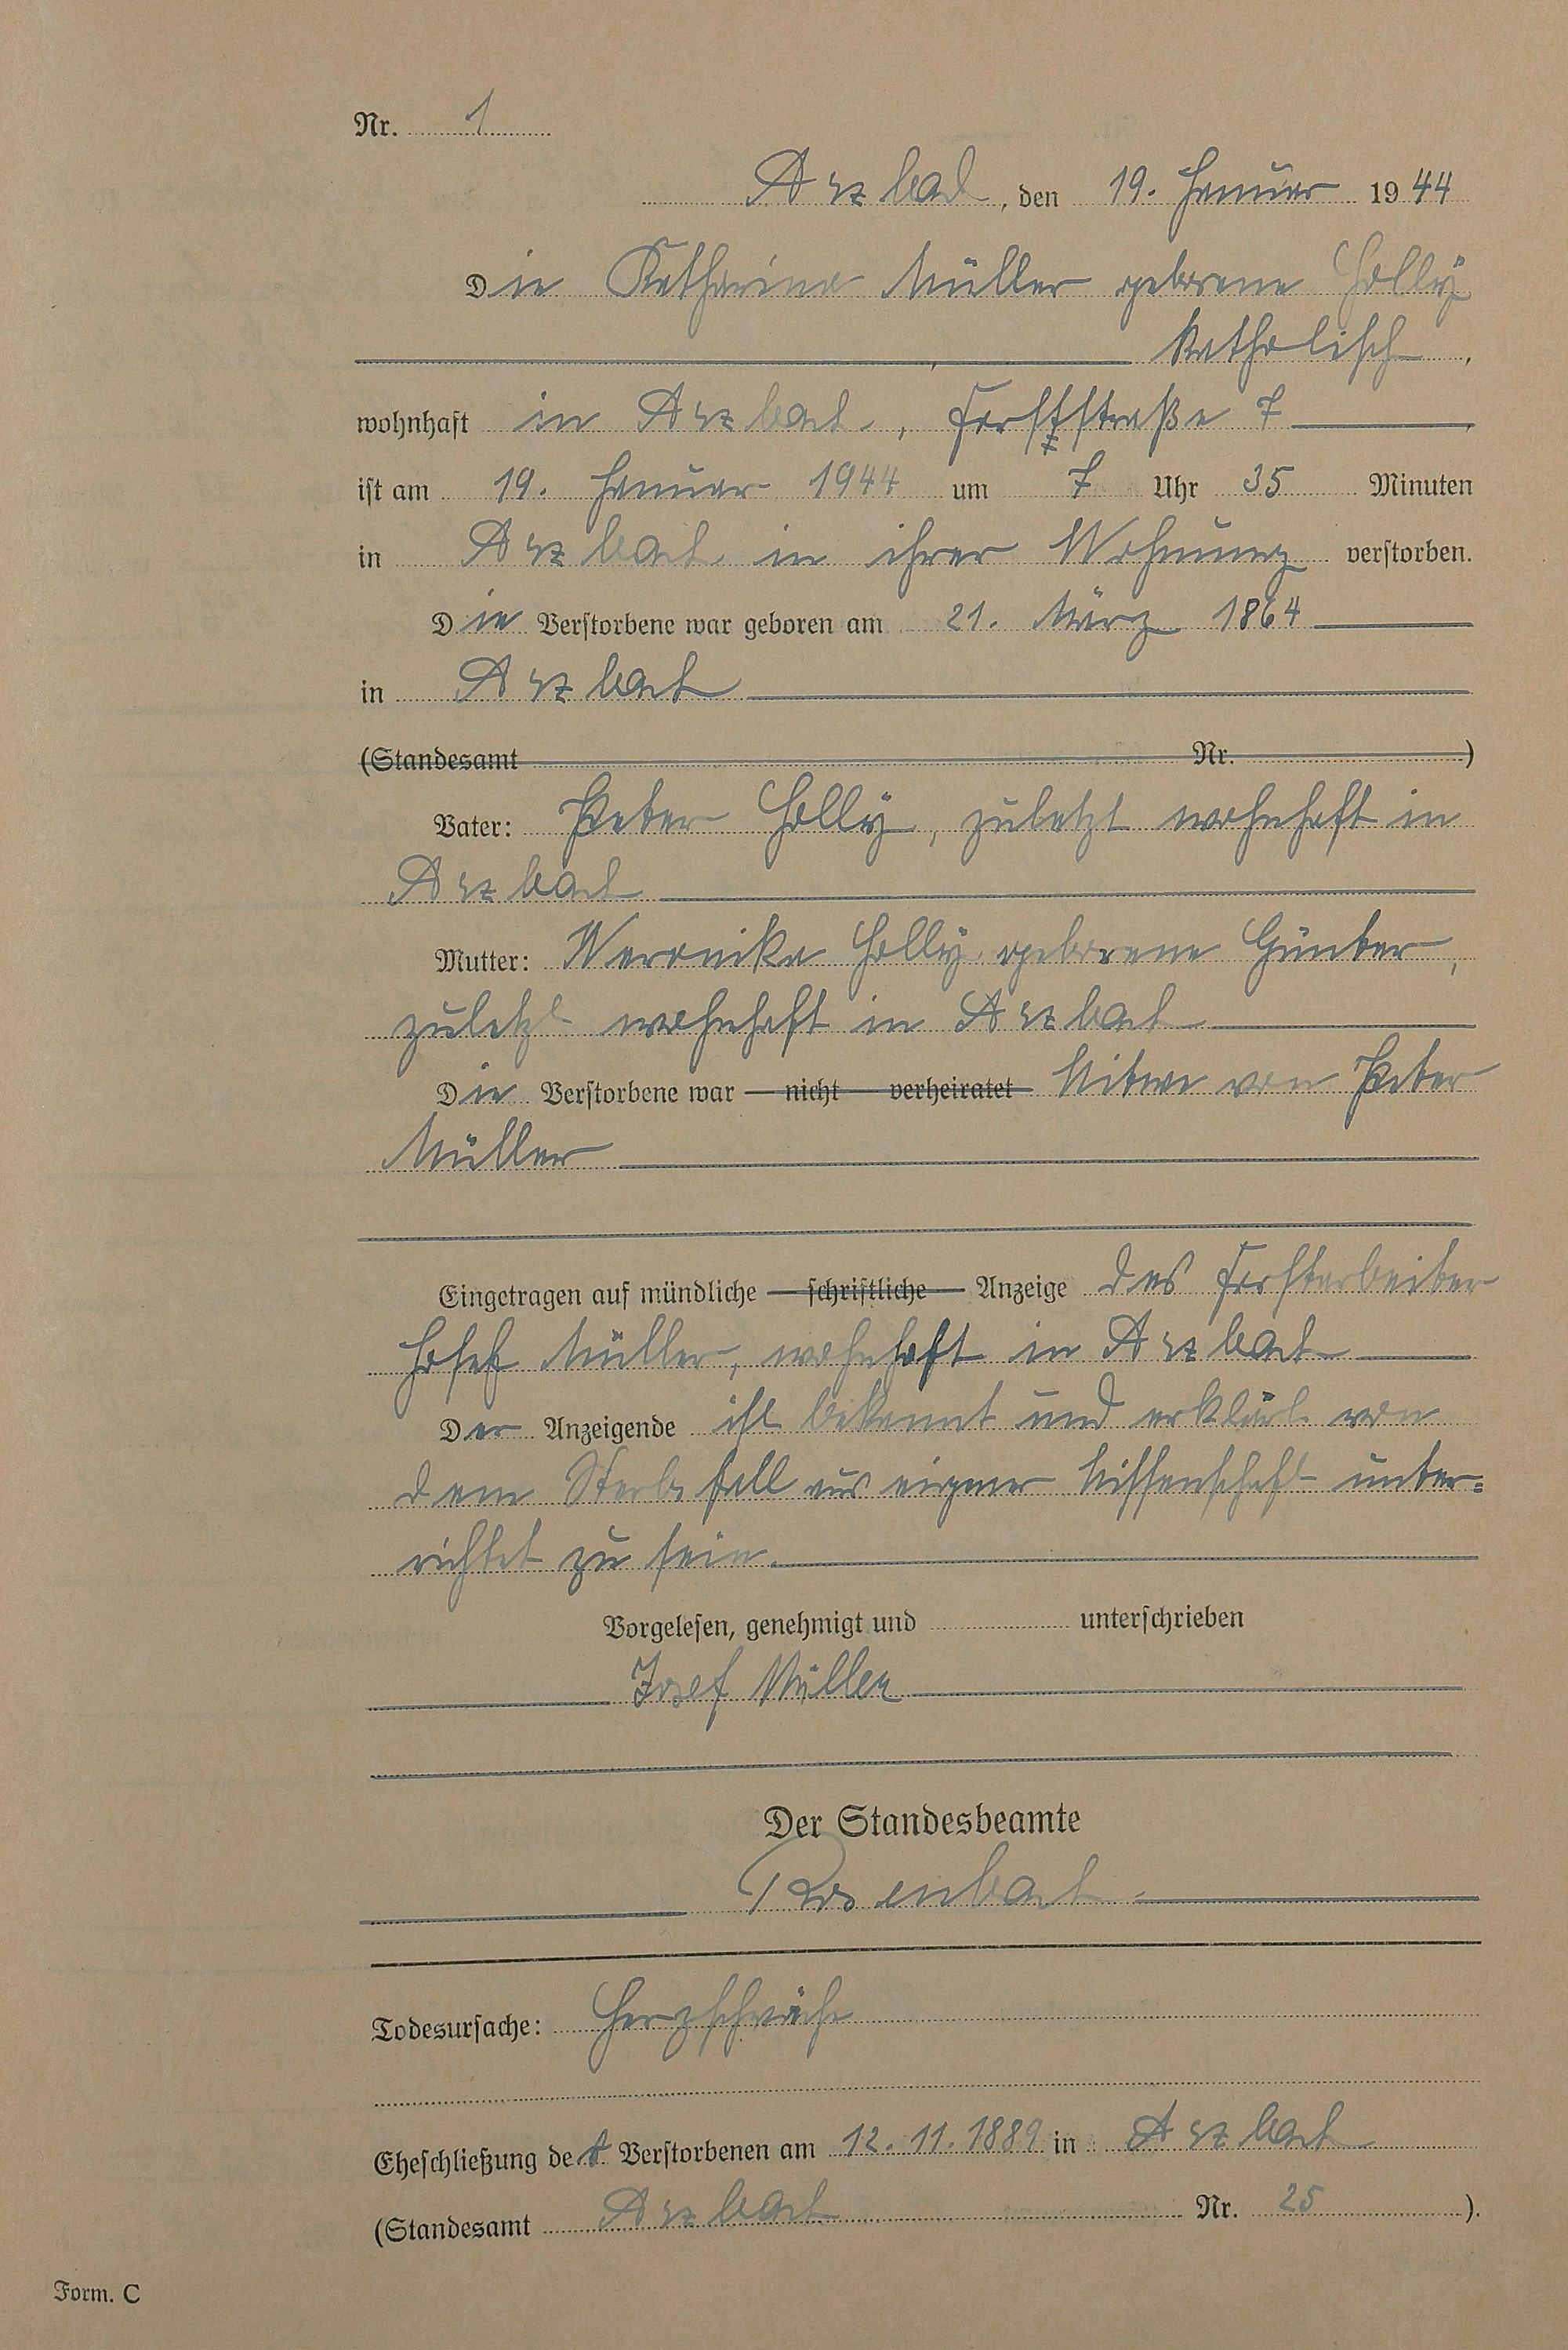 Nr. 1
Arzbach, den 19. Januar 1944
Die Katharina Müller geborene Holly
katholisch,
wohnhaft in Arzbach, Forststraße 7,
ist am 19. Januar 1944 um 7 Uhr 35 Minuten
in Arzbach in ihrer Wohnung verstorben.
Die Verstorbene war geboren am 21. März 1864
in Arzbach
(Standesamt Nr. )
Vater: Peter Holly, zuletzt wohnhaft in
Arzbach
Mutter: Veronika Holly geborene Günter,
zuletzt wohnhaft in Arzbach
Die Verstorbene war nicht verheiratet Witwe von Peter
Müller
Eingetragen auf mündliche schriftliche Anzeige des Forstarbeiter
Josef Müller, wohnhaft in Arzbach
Der Anzeigende ist bekannt und erklärt von
dem Sterbefall aus eigener Wissenschaft unter=
richtet zu sein.
Vorgelesen, genehmigt und unterschrieben
Josef Müller
Der Standesbeamte
Rosenbach
Todesursache: Herzschwäche
Eheschließung der Verstorbenen am 12.11.1889 in Arzbach
(Standesamt Arzbach Nr. 25).
Form. C